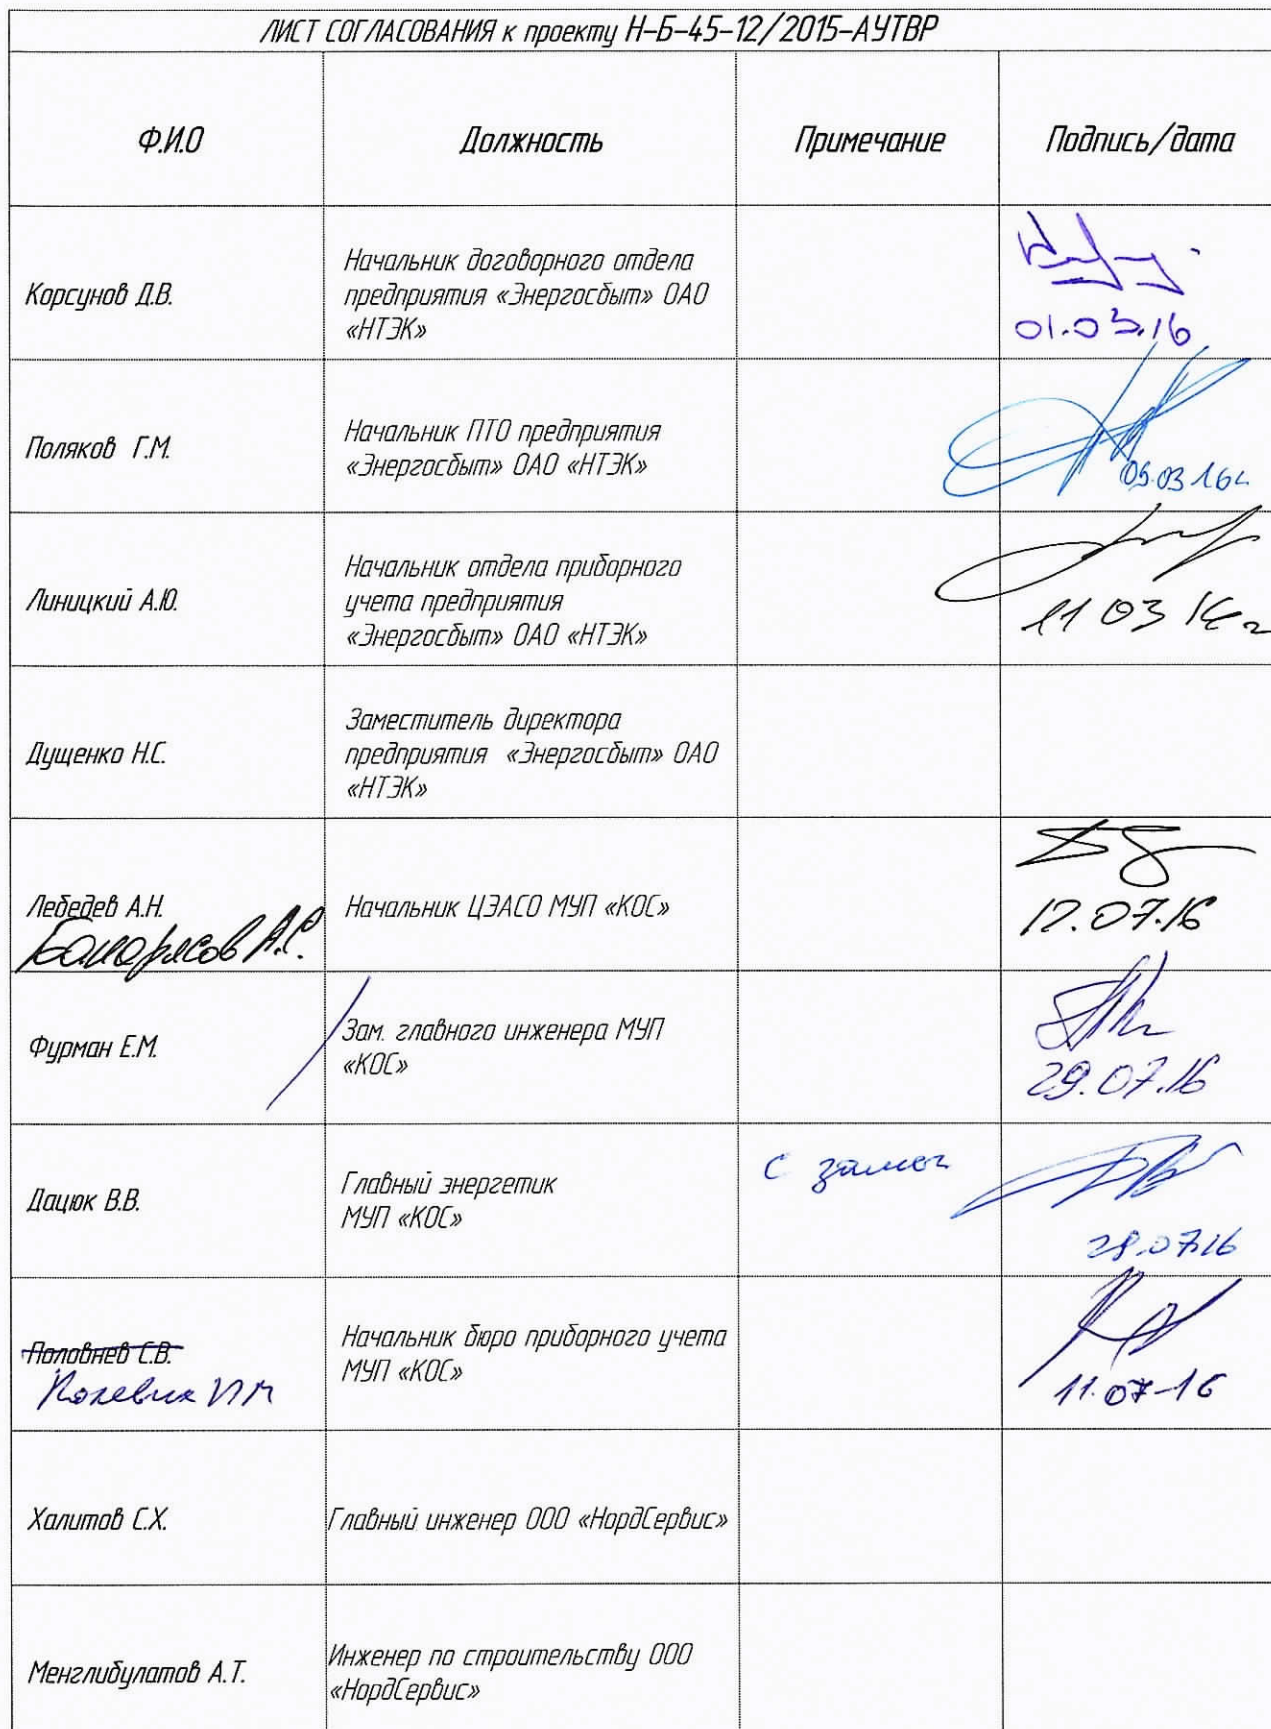 ЛИСТ СОГЛАСОВАНИЯ к проекту Н-Б-45-12/2015-АУТВР
Ф.И.О
Должность
Примечание
Подпись/дата
Корсунов Д.В.
Начальник договорного отдела
предприятия «Энергосбыт» ОАО
«НТЭК»
01.03.16
Поляков Г.М.
Начальник ПТО предприятия
«Энергосбыт» ОАО «НТЭК»
09.03.16г
Линицкий А.Ю.
Начальник отдела приборного
учета предприятия
«Энергосбыт» ОАО «НТЭК»
11 03 16г
Дущенко Н.С.
Заместитель директора
предприятия «Энергосбыт» ОАО
«НТЭК»
Лебедев А.Н.
А.С.
Начальник ЦЭАСО МУП «КОС»
12.07.16
Фурман Е.М.
Зам. главного инженера МУП
«КОС»
29.07.16
Дацюк В.В.
Главный энергетик
МУП «КОС»
с замеч
28.07.16
Половнев С.В.
Начальник бюро приборного учета
МУП «КОС»
11.07-16
Халитов С.Х.
Главный инженер ООО «НордСервис»
Менглибулатов А.Т.
Инженер по строительству ООО
«НордСервис»